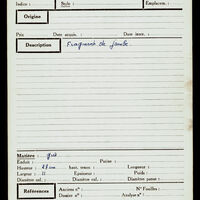 Indice : Style : Emplacem. :
Origine
Prix Date acquis. : Date inscr. :
Description Fragment de jambe
Matière : grès
Enduit : Patine :
Hauteur : haut. tenon : Longueur :
Largeur : 11 Epaisseur : Profondeur :
Diamètre ouv. : Diamètre col. : Diamètre panse :
Références Anciens n° : N° Fouilles :
Dossier n° : Analyse n° :